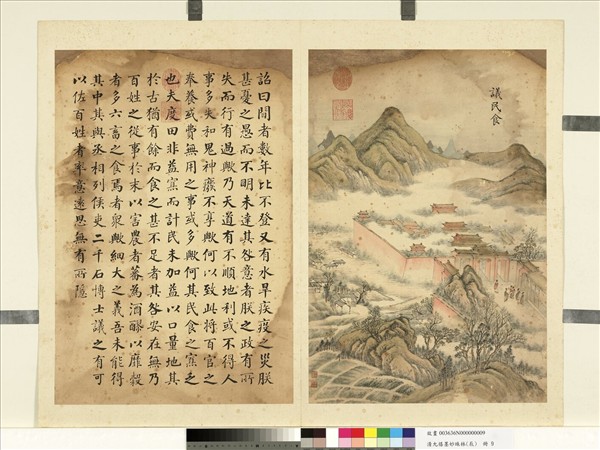 議民食
詔曰間者數年比不登又有水旱疾疫之災朕
甚憂之愚而不明未達其咎意者朕之政有所
失而行有過歟乃天道有不順地利或不得人
事多失和鬼神廢不享歟何以致此將百官之
奉養或費無用之事或多歟何其民食之寡乏
也夫度田非益寡而計民未加益以口量地其
於古猶有餘而食之甚不足者其咎安在無乃
百姓之從事於末以害農者蕃為酒醪以靡穀
者多六畜之食焉者衆歟細大之義吾未能得
其中其與丞相列侯吏二千石博士議之有可
以佐百姓者率意遠思無有所隱
故畫 003636N000000009
墨妙珠林